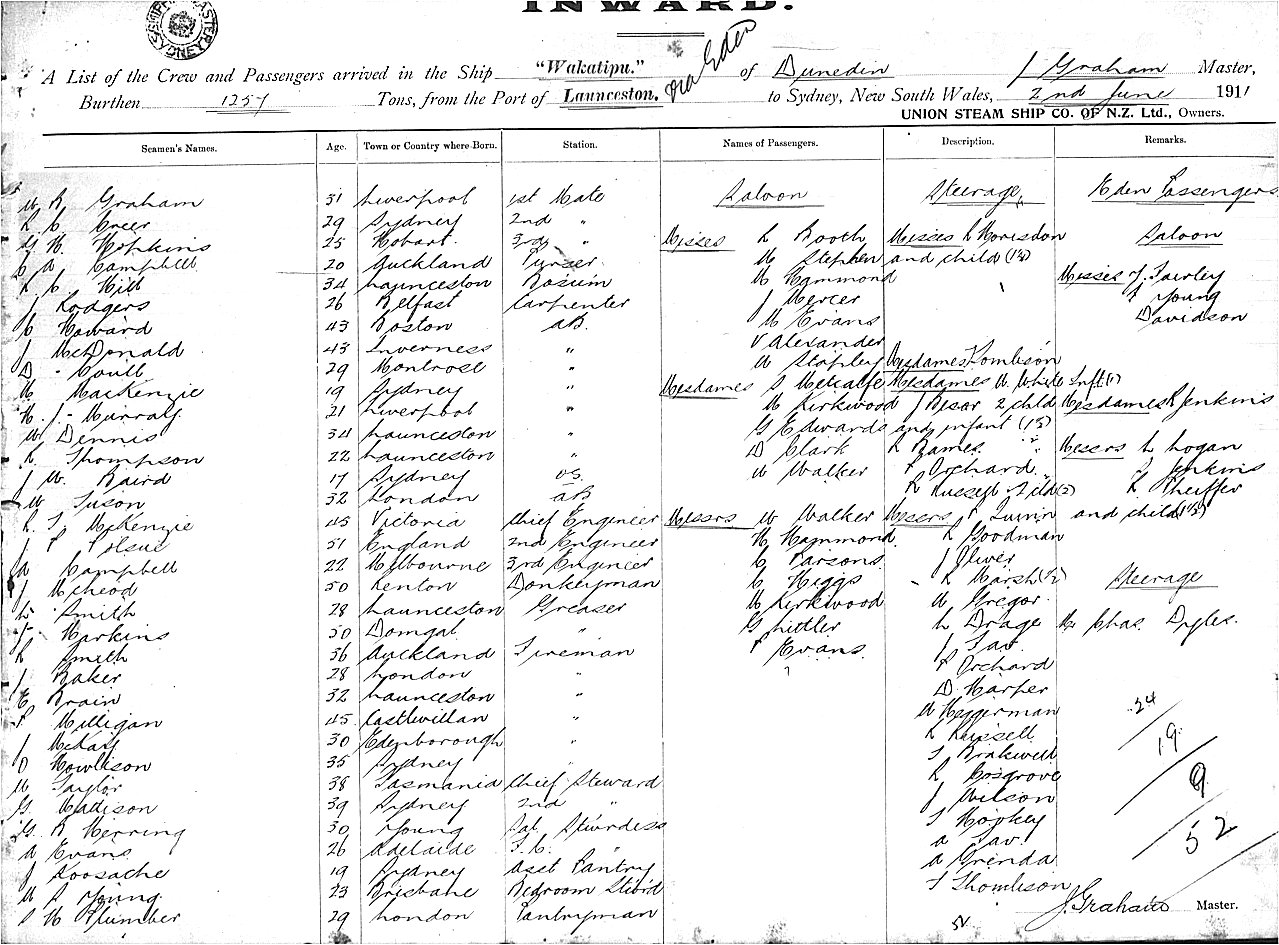 INWARD.
SHIPPING MASTER SYDNEY
A List of the Crew and Passengers arrived in the Ship "Wakatipu." of Dunedin J Graham Master,
via Eden
Burthen 1257 Tons, from the Port of Launceston, to Sydney, New South Wales, 2nd June 1911
UNION STEAM SHIP CO. OF N.Z. Ltd., Owners.
Seamen's Names. Age. Town or Country where Born. Station. Names of Passengers. Description. Remarks.
W R Graham 31 Liverpool 1st Mate
29 Sydney 2nd "
G H Hopkins 25 Hobart 3rd "
C A Campbell 20 Auckland Purser
R C Hill 34 Launceston Bosun
J Rodgers 26 Belfast Carpenter
C Howard 43 Boston AB
J McDonald 43 Inverness "
D Coull 29 Montrose "
M MacKenzie 19 Sydney "
H. J. Murray 21 Liverpool "
W Dennis 34 Launceston "
R Thompson 22 Launceston "
J W. Baird 17 Sydney OS
W Tuson 32 London AB
R. T. McKenzie 45 Victoria Chief Engineer
51 England 2nd Engineer
A Campbell 22 Melbourne 3rd Engineer
J McLeod 50 Renton Donkeyman
Smith 28 Launceston Greaser
Harkins 50 Donegal "
R Smith 36 Auckland Fireman
J Baker 28 London "
E Brain 32 Launceston "
P Milligan 45 Castlwillan "
J McKay 30 Edenborough "
O Howlison 35 Sydney "
W Taylor 38 Tasmania Chief Steward
G Madison 39 Sydney 2nd "
G. R Herring 30 Young Sal. Stewrdess
A Evans 26 Adelaide "
J 19 Sydney Asst Pantry
W S Young 23 Brisbane Bedroom Stwrd
S H Plumber 29 London Pantryman
Saloon
Misses L Booth
M Stephen
M Hammond
J Mercer
M Evans
V Alexander
M Stapley
Mesdames S Metcalfe
M Kirkwood
G Edwards
D Clark
M Walker
Messrs W Walker
H Hammond
C Parsons
C Higgs
M Kirkwood
G Littler
P Evans
Steerage
Misses L Morisdon
and child (1½)
Mesdames Tomlison
Mesdames W White Inft (1)
J Besar 2 child
and infant (1½)
R Eames "
P Orchard
R Russell 2 ild (2)
Messrs P Quinn
R Goodman
J Oliver
R Marsh (½)
W Gregor
L Drage
J Tav
P Orchard
D Harper
W Heggerman
R Russell
T Brakwell
R Cosgrove
J Wilson
T Hopkey
A Tav
A Grenda
T Thomlison
Eden Passengers
Saloon
Misses J. Fairley
Young
Davidson
Mesdames R Jenkins
Messrs L Logan
J Jenkins
R Pheiffer
and child (½)
Steerage
Mr Chas. Dyles.
24
19
9
52
J. Graham Master.